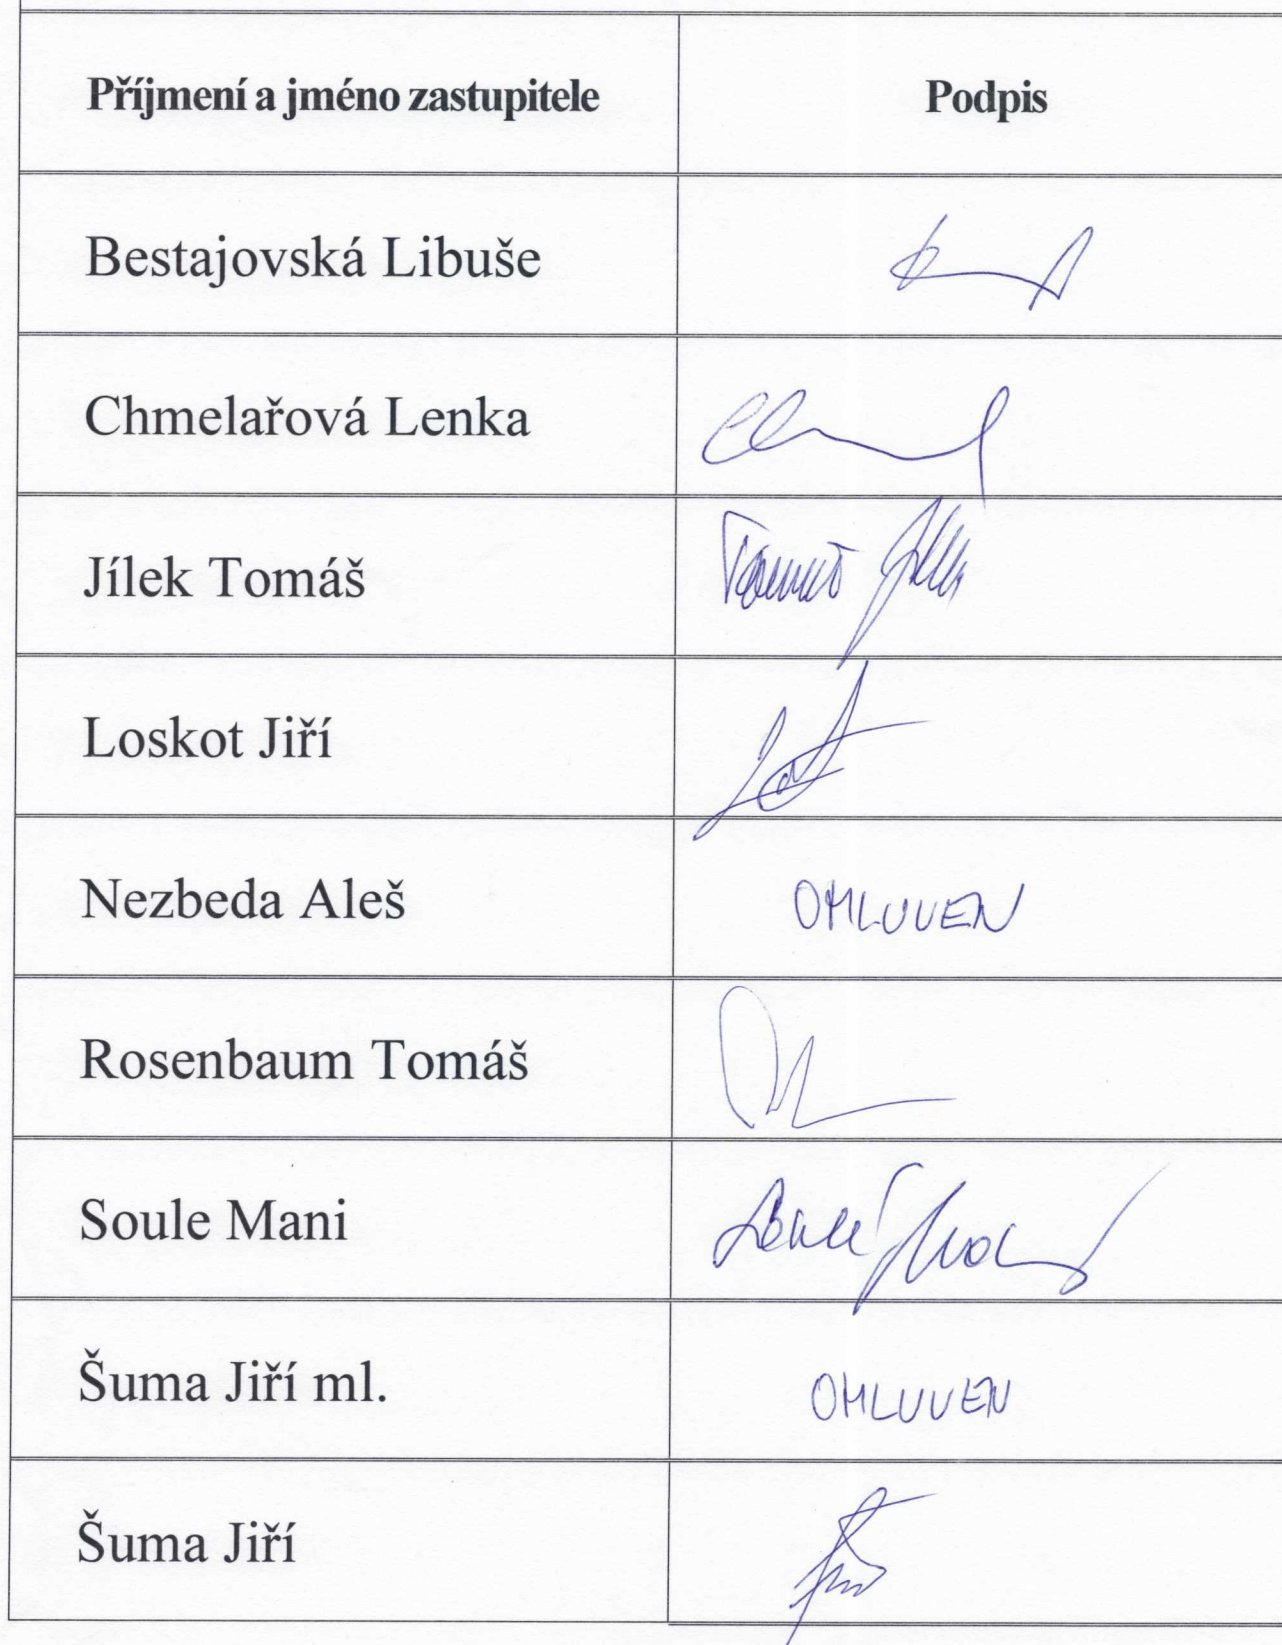 Příjmení a jméno zastupitele Podpis
Bestajovská Libuše
Chmelařová Lenka
Jílek Tomáš Tomáš Jílek
Loskot Jiří
Nezbeda Aleš OMLUVEN
Rosenbaum Tomáš
Soule Mani
Šuma Jiří ml. OMLUVEN
Šuma Jiří